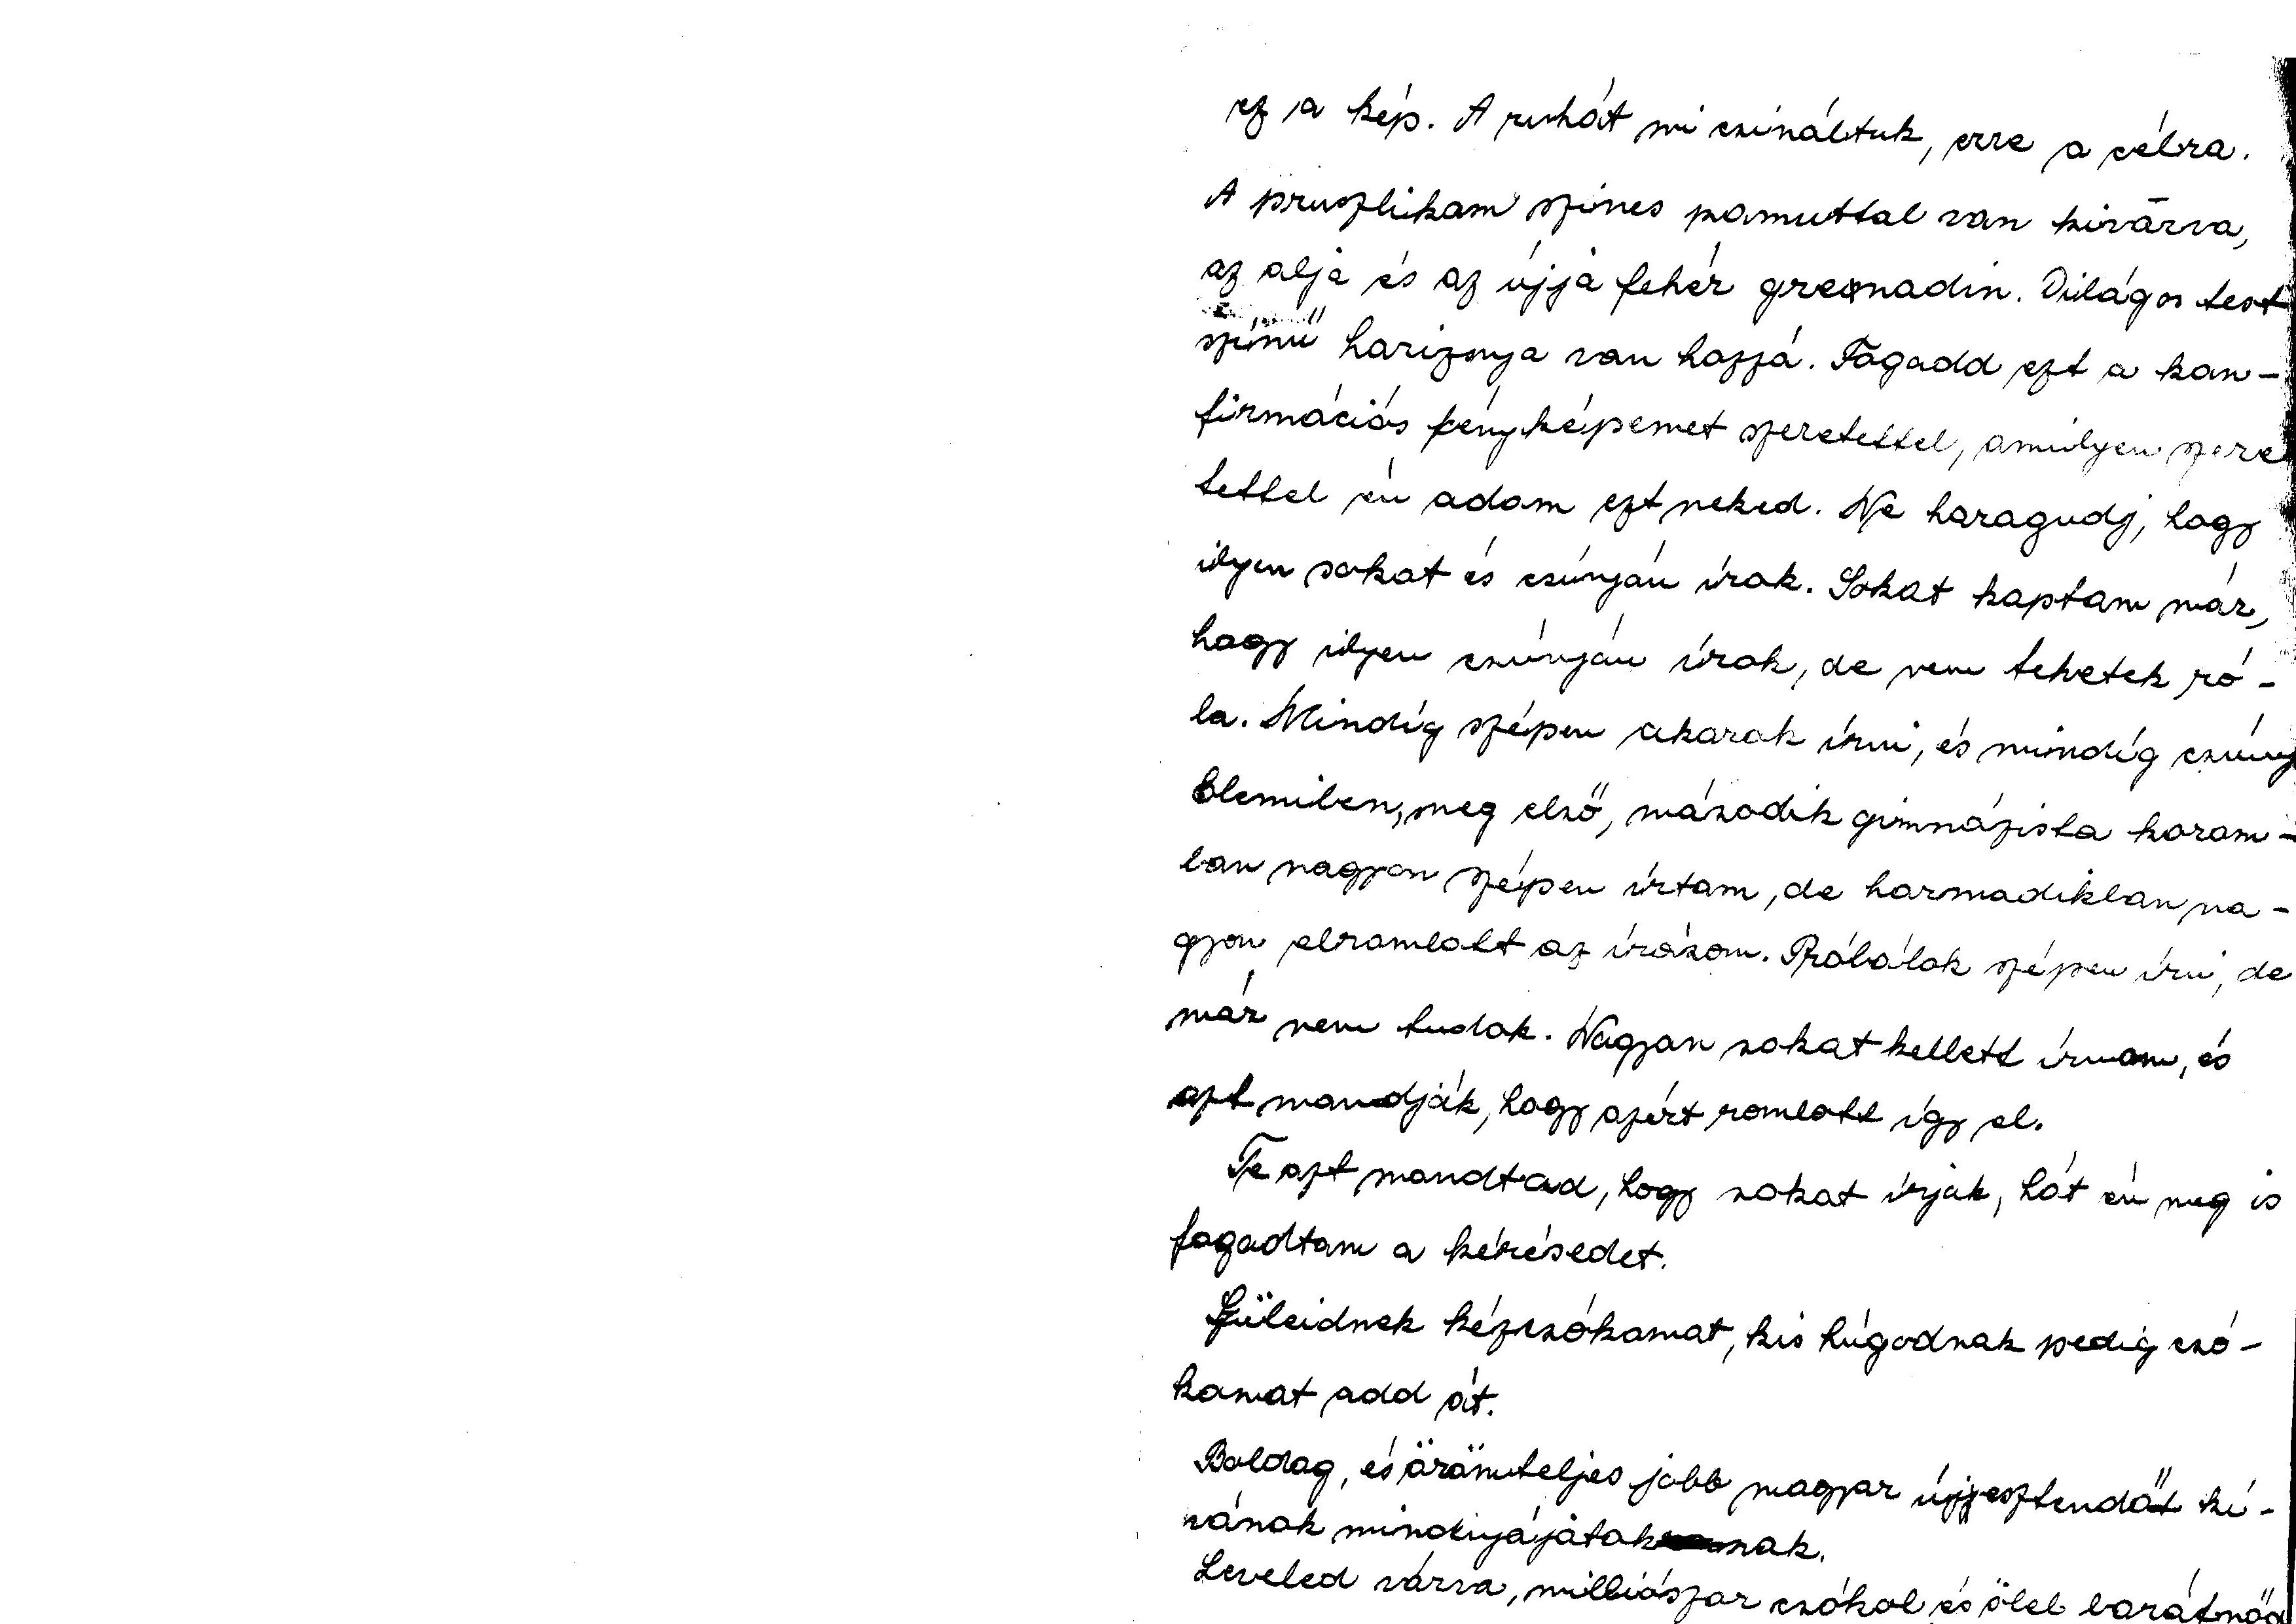 ez a kép. A ruhát mi csináltuk, erre a célra.
A pruszlikam színes pamuttal van kivárva,
az alja és az újja fehér grenadin. Világos test
színű harizsnya van hozzá. Fogadd ezt a kon-
firmációs fényképemet szeretettel, amilyen szere
tettel én adom ezt neked. Ne haragudj, hogy
ilyen sokat és csúnyán írok. Sokat kaptam már,
hogy ilyen csúnyán írok, de nem tehetek ró-
la. Mindíg szépen akarok írni, és mindíg csúny
Elemiben, meg első, második gimnázista korom-
ban nagyon szépen írtam, de harmadikban na-
gyon elromlott az írásom. Próbálok szépen írni, de
már nem tudok. Nagyon sokat kellett írnom, és
azt mondják, hogy azért romlott így el.
Te azt mondtad, hogy sokat írjak, hát én meg is
fogadtam a kérésedet.
Szüleidnek kézcsókomat, kis húgodnak pedig csó-
komat add át.
Boldog, és örömteljes jobb magyar újjesztendőt kí-
vánok mindnyájátoknak.
Leveled várva, milliószor csókol és ölel barátnőd